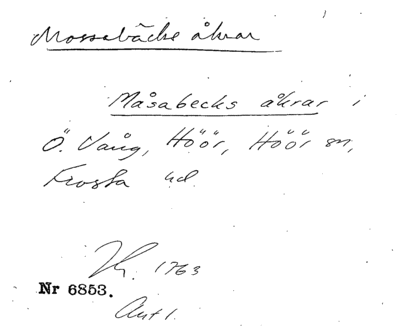 Mossabäcks åkrar
Måsabecks åkrar i
Ö. Vång, Höör, Höör sn,
Frosta hd.
1763
Nr 6853.
Ant 1.